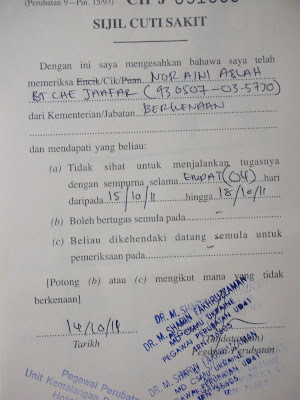 (Perubatan 9—Pin. 15/93) CH J 051000
SIJIL CUTI SAKIT
Dengan ini saya mengesahkan bahawa saya telah
memeriksa Encik/Cik/Puan NOR AINI ASLAH
BT CHE JAAFAR (930507-03-5770)
dari Kementerian/Jabatan BERKENAAN
dan mendapati yang beliau:
(a) Tidak sihat untuk menjalankan tugasnya
dengan sempurna selama EMPAT (04) hari
daripada 15/10/11 hingga 18/10/11
(b) Boleh bertugas semula pada -
(c) Beliau dikehendaki datang semula untuk
pemeriksaan pada -
[Potong (b) atau (c) mengikut mana yang tidak
berkenaan]
DR. M. SHARIN FAKHRUZZAMAN
MD CSMU UKRAINE
PEGAWAI PERUBATAN UD41
14/10/11
Tarikh
(Tandatangan)
Pegawai Perubatan
DR. M. SHARIN FAKHRUZZAMAN
MD CSMU UKRAINE
PEGAWAI PERUBATAN UD41
Pegawai Perubatan
Unit Kemalangan